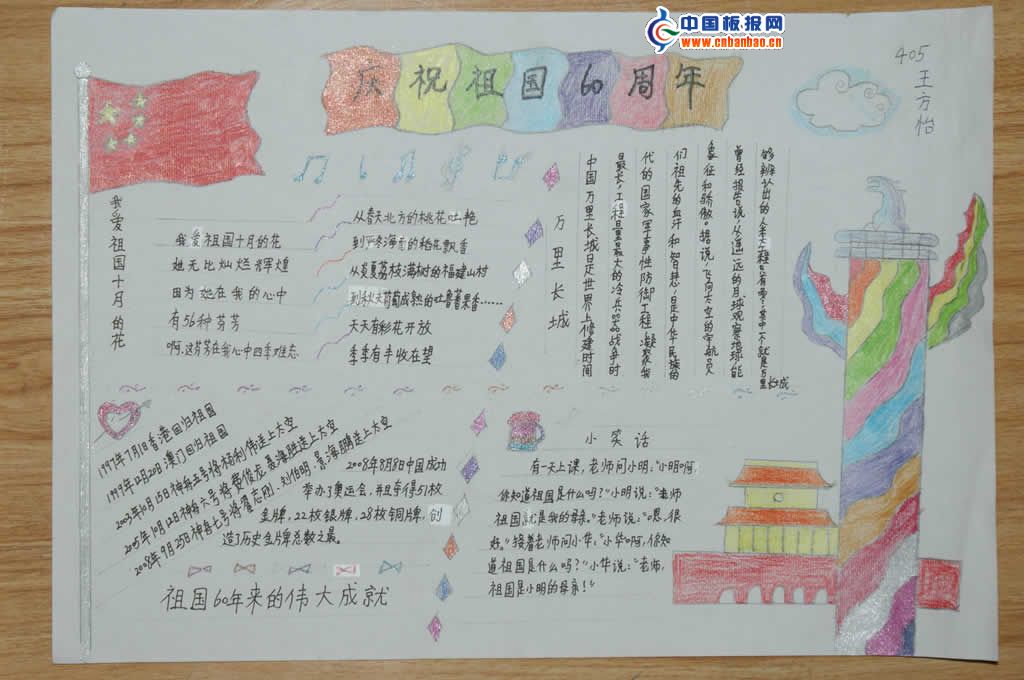 中国板报网
www.cnbanbao.cn
庆祝祖国60周年
405
王方怡
我爱祖国十月的花
我爱祖国十月的花
她无比灿烂辉煌
因为她在我的心中
有56种芬芳
啊,这芬芳在我心中四季难忘
从春天北方的桃花吐艳
到海南的稻花飘香
从炎夏荔枝满树的福建山村
到秋天葡萄成熟的吐鲁番果香……
天天有彩花开放
季季有丰收在望
万里长城
中国万里长城日是世界上修建时间
最长,工程量最大的冷兵器战争时
代的国家军事性防御工程,凝聚我
们祖先的血汗和智慧,是中华民族的
象征和骄傲。据说,飞向太空的宇航员
曾经报告说,从遥远的月球观察地球,能
够辨认出的人类工程只有哪?其中一个就是万里
长成
1997年7月1日香港回归祖国
1999年12月20日澳门回归祖国
2003年10月15日神舟五号将杨利伟送上太空
2005年10月12日神舟六号将费俊龙,聂海胜送上太空
2008年9月25日神舟七号将翟志刚.刘伯明.景海鹏送上太空
2008年8月8日中国成功
举办了奥运会,并且夺得51枚
金牌,22枚银牌,28枚铜牌,创
造了历史金牌总数之最。
祖国60年来的伟大成就
小笑话
有一天上课,老师问小明:“小明啊,
你知道祖国是什么吗?”小明说:“老师
祖国就是我的母亲。”老师说:“恩,很
好。”接着老师问小华:“小华啊,你知
道祖国是什么吗?”小华说:“老师,
祖国是小明的母亲!”